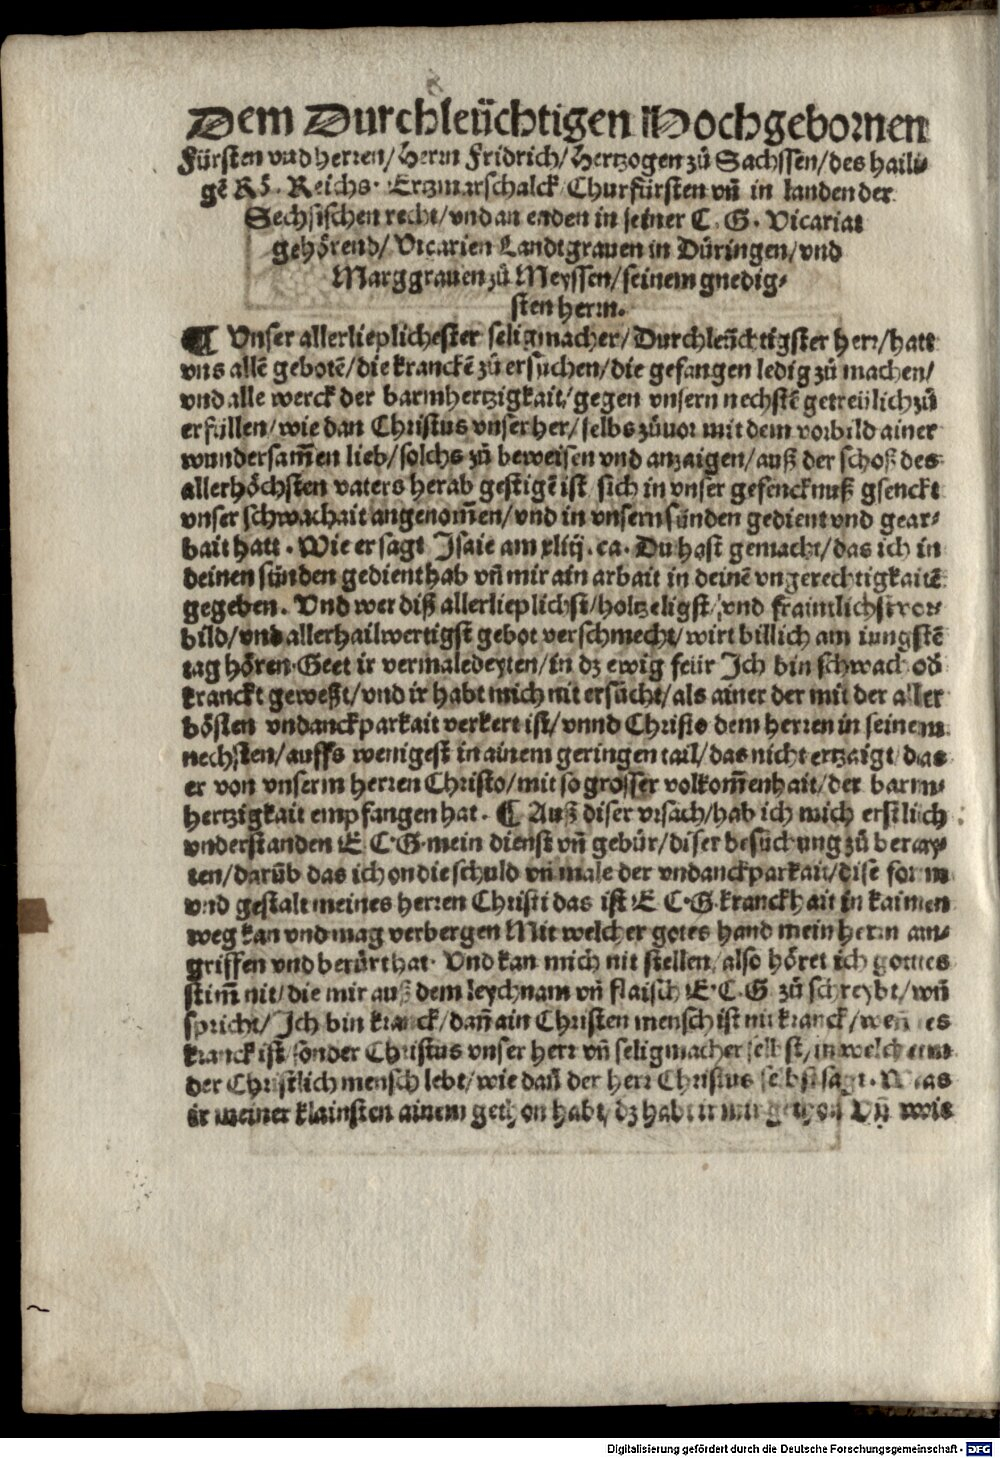 Dem Durchleüchtigen Hochgebornen
Fürsten vnd herren/ Herrn Fridrich/ Hertzogen zů Sachssen/ des haili-
gẽ Rö. Reichs. Ertzmarschalck Churfürsten vñ in landen der
Sechsischen recht/ vnd an enden in seiner C. G. Vicariat
gehörend/ Vicarien Landtgrauen in Düringen/ vnd
Marggrauen zů Meyssen/ seinem gnedig-
sten herrn.
¶ Vnser allerlieplichester seligmacher/ Durchleüchtigster herr/ hatt
vns allẽ gebotẽ/ die kranckẽ zů ersuchen/ die gefangen ledig zů machen/
vnd alle werck der barmhertzigkait/ gegen vnsern nechstẽ getreülich zů
erfüllen/ wie dan Christus vnser her/ selbs zůuor mit dem vorbild ainer
wundersam̃en lieb/ solchs zů beweisen vnd anzaigen/ auß der schoß des
allerhöchsten vaters herab gestigẽ ist sich in vnser gefencknuß gsenckt
vnser schwachait angenom̃en/ vnd in vnsern sünden gedient vnd gear-
bait hatt. Wie er sagt Jsaie am xliij. ca. Du hast gemacht/ das ich in
deinen sünden gedient hab vñ mir ain arbait in deinẽ vngerechtigkaitẽ
gegeben. Vnd wer diß allerlieplichst/ holtzeligst/ vnd fraintlichst vor-
bild/ vnd allerhailwertigst gebot verschmecht/ wirt billich am iungstẽ
tag hören. Geet ir vermaledeyten/ in dz ewig feür Jch bin schwach od̃
kranckt geweßt/ vnd ir habt mich nit ersücht/ als ainer der mit der aller
bösten vndanckparkait verkert ist/ vnnd Christo dem herren in seinem
nechsten/ auffs wenigest in ainem geringen tail/ das nicht ertzaigt/ das
er von vnserm herren Christo/ mit so grosser volkom̃enhait/ der barm-
hertzigkait empfangen hat. ¶ Auß diser vrsach/ hab ich mich erstlich
vnderstanden E C G mein dienst vñ gebür/ diser besůchung zů beray-
ten/ darüb das ich on die schuld vñ male der vndanckparkait/ dise form
vnd gestalt meines herren Christi das ist E C G. kranckhait in kainen
weg kan vnd mag verbergen Mit welcher gotes hand mein herrn am-
griffen vnd berürt hat. Vnd kan mich nit stellen/ also höret ich gottes
stim̃ nit/ die mir auß dem leychnam vñ flaisch E. C. G zů schreybt/ vnd
spricht/ Jch bin kranck/ dañ ain Christen mensch ist nit kranck/ weñ es
kranck ist/ sonder Christus vnser herr vñ seligmacher selbst/ in welchem
der Christlich mensch lebt/ wie dañ der herr Christus selbst sagt. Was
ir meiner klainsten ainem gethon habt/ dz habt ir mir gethon Vñ wie
Digitalisierung gefördert durch die Deutsche Forschungsgemeinschaft - DFG